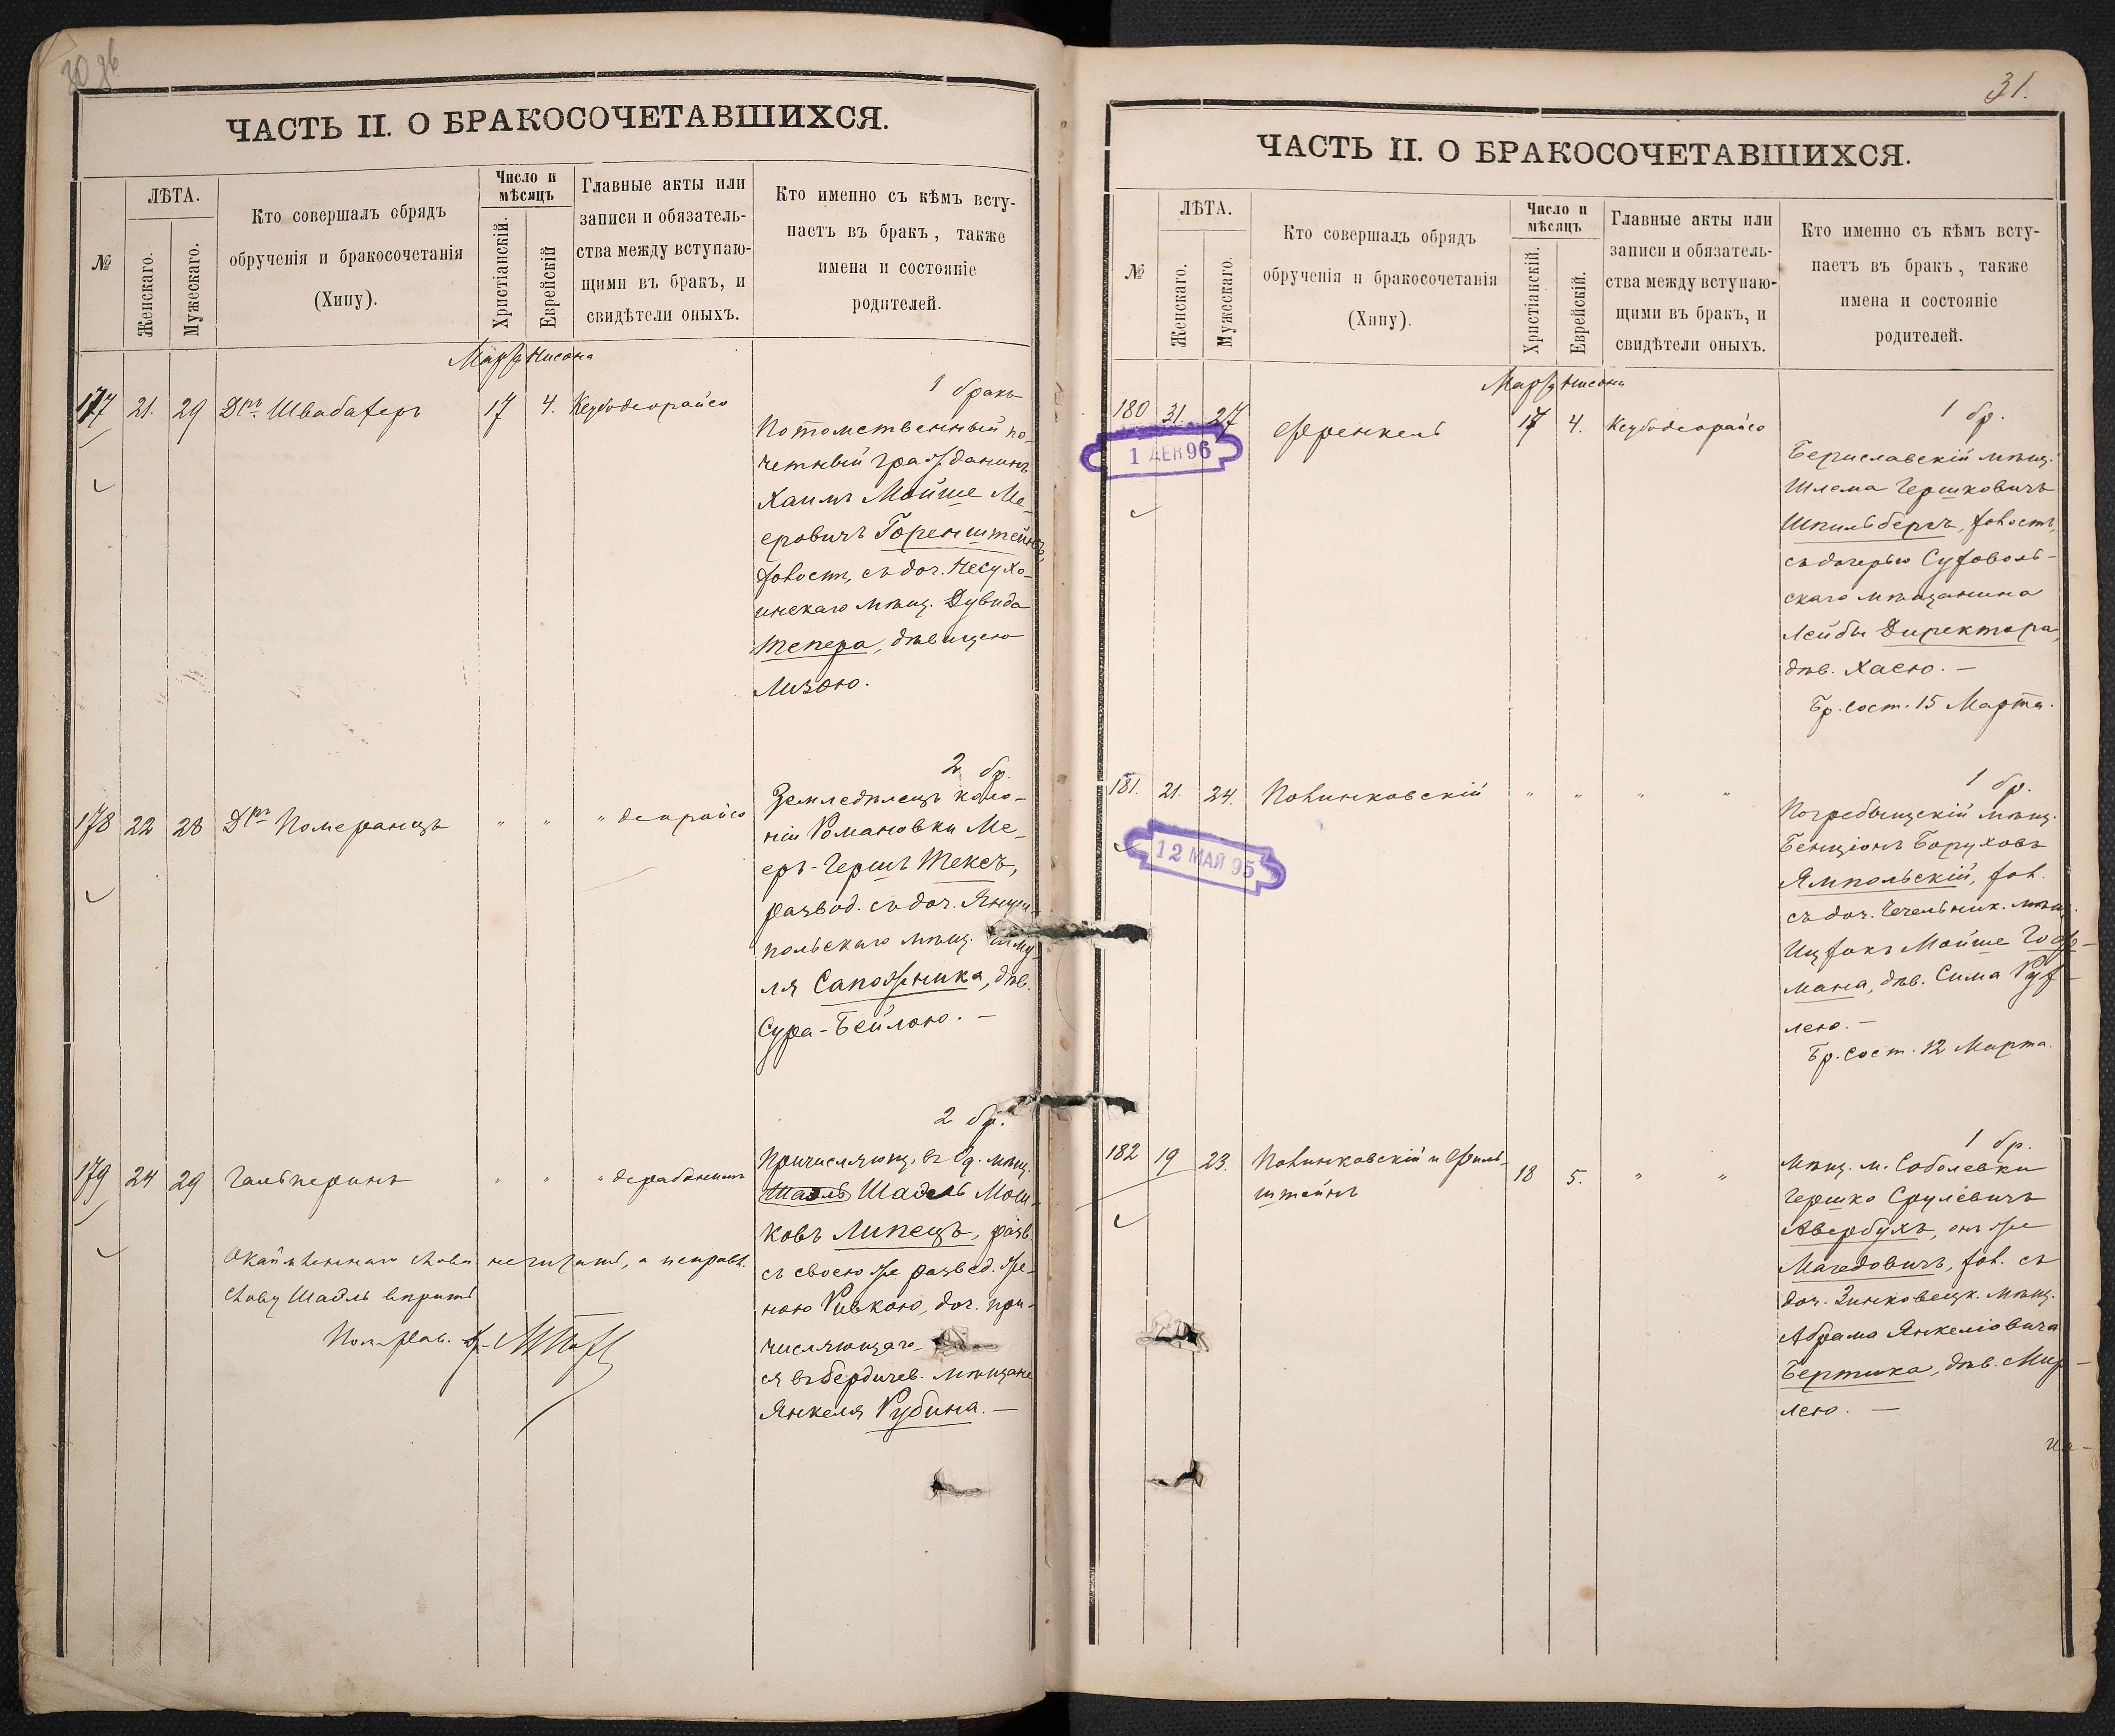 30 об
ЧАСТЬ II. О БРАКОСОЧЕТАВШИХСЯ.
№
ЛѢТА.
Женскаго.
Мужескаго.
Кто совершалъ обрядъ
обрученія и бракосочетанія
(Хипу).
Число и
мѣсяцъ
Христіанскій.
Еврейскій
Главные акты или
записи и обязатель-
ства между вступаю-
щими въ бракъ, и
свидѣтели оныхъ.
Кто именно съ кѣмъ всту-
паетъ въ бракъ, также
имена и состояніе
родителей.
Мартъ Нисона
177 21. 29 Швабахеръ 17 4. Кеубодеорайсо
1 бракъ
Потомственный по-
четный гражданинъ
Хаимъ Мойше Ме-
еровичъ Горенштейнъ,
холост, съ доч. Несухо-
инскаго мѣщ. Дувида
Тепера, дѣвицею
Лизою.
178 22 28 Померанцъ " " " деорайсо
2 бр.
Земледѣлецъ коло-
ніи Романовки Ме-
еръ-Гершъ Тексъ,
развод. съ доч. Януш-
польскаго мѣщ. Шму-
ля Сапожника, дѣв.
Сура-Бейлою. —
179 24 29 Гальперинъ " " " дерабонимъ
2 бр.
Причисляющ. въ Од. мѣщ.
Шаэль Мош-
ковъ Липецъ, разв.
съ своею же развед. же-
ною Ривкою, доч. при-
числяющаго-
ся въ Бердичев. мѣщане
Янкеля Рубина. —
слова не читать, а исправл.
слову Шаэль вѣрить
31.
ЧАСТЬ II. О БРАКОСОЧЕТАВШИХСЯ.
№
ЛѢТА.
Женскаго.
Мужескаго.
Кто совершалъ обрядъ
обрученія и бракосочетанія
(Хипу).
Число и
мѣсяцъ
Христіанскій.
Еврейскій.
Главные акты или
записи и обязатель-
ства между вступаю-
щими въ бракъ, и
свидѣтели оныхъ.
Кто именно съ кѣмъ всту-
паетъ въ бракъ, также
имена и состояніе
родителей.
Мартъ Нисонъ
180 31. 27 Френкель 17 4. Кеубодеорайсо
1 ДЕК 96
1 бр.
Бериславскій мѣщ.
Шлема Гершковичъ
Шпильбергъ, холостъ,
съ дочерью Суховоль-
скаго мѣщанина
Лейбы Директора,
дѣв. Хаею. —
Бр. сост. 15 Марта.
181. 21. 24. Полинковскій " " " "
12 МАЙ 95
1 бр.
Погребыщскій мѣщ.
Бенціонъ Боруховъ
Ямпольскій, хол.
съ доч. Чечельник. мѣщ.
Ицхокъ Мойше Гоф-
мана, дѣв. Сима Рух-
лею. —
Бр. сост. 12 Марта.
182 19 23. Полинковскій и Филь- 18 5. " "
штейнъ
1 бр.
Мѣщ. м. Соболевки
Гершко Срулевичъ
Авербухъ, онъ же
Магедовичъ, хол. съ
доч. Зинковецк. мѣщ.
Абрама Янкеліовича
Бертика, дѣв. Мир-
лею. —